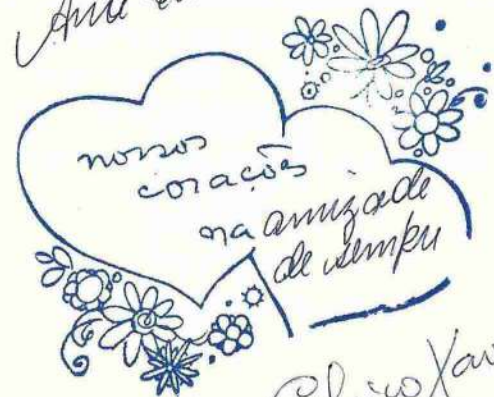 nossos
corações
na amizade
de sempre
Chico Xav